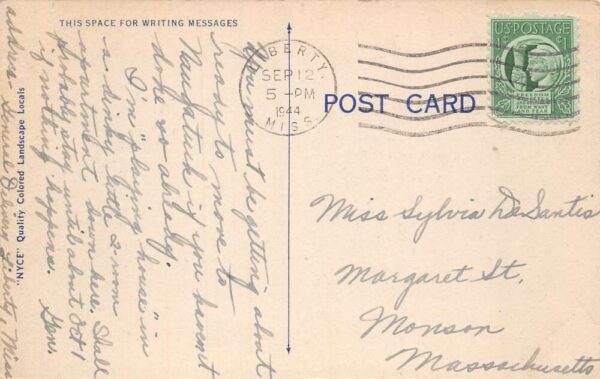 THIS SPACE FOR WRITING MESSAGES
You must be getting about
ready to move to
Naugatuck if you haven't
done so already.
I'm "playing house" in
a dinky little 2-room
apartment down here. Shall
probably stay until about Oct 1
if nothing happens.
Gen.
address - General Delivery Liberty, Miss
"NYCE" Quality Colored Landscape Locals
LIBERTY,
SEP 12
5 - PM
1944
MISS.
POST CARD
U.S. POSTAGE
1¢
FREEDOM
OF SPEECH AND
RELIGION, FROM
WANT AND FEAR
Miss Sylvia DeSantis
Margaret St.
Monson
Massachusetts